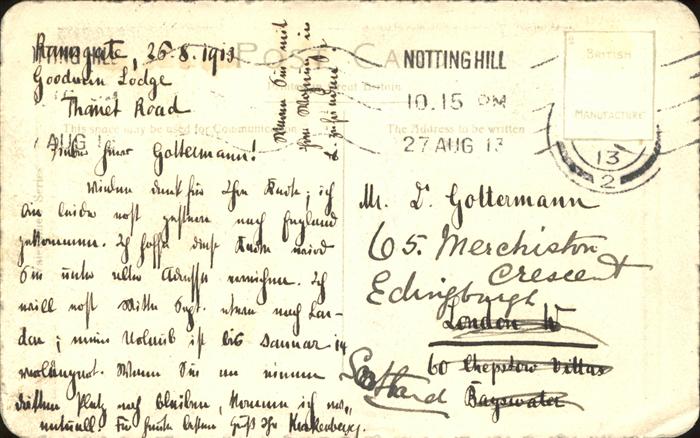 Ramsgate, 26.8.1913
Goodwin Lodge
Thanet Road
POST CARD
Great Britain
This space may be used for Communication
The Address to be written
NOTTING HILL
10.15 PM
27 AUG 13
BRITISH
MANUFACTURE
13
2
AUG
Lieber Herr Goltermann!
vielen Dank für Ihre Karte; ich
bin leider erst gestern nach England
gekommen. Ich hoffe diese Karte wird
Sie unter alter Adresse erreichen. Ich
will erst Mitte Sept. etwa nach Lon-
don; mein Urlaub ist bis Januar 14
verlängert. Wenn Sie an einem
dritten Platz noch bleiben, komme ich
eventuell
Für heute besten Gruß Ihr
Wenn Sie mit
Mr. D. Goltermann
65. Merchiston
Crescent
Edingburgh
London W
60 Chepstow Villas
Bayswater
Scotland